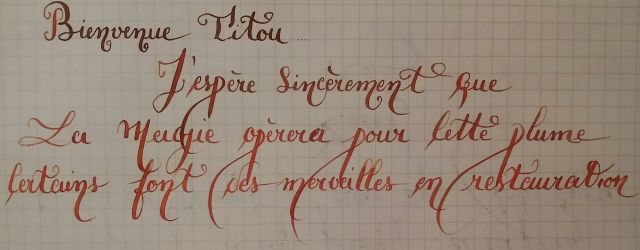 Bienvenue Titou...
J'espère sincèrement que
La Magie opèrera pour cette plume
Certains font des merveilles en restauration